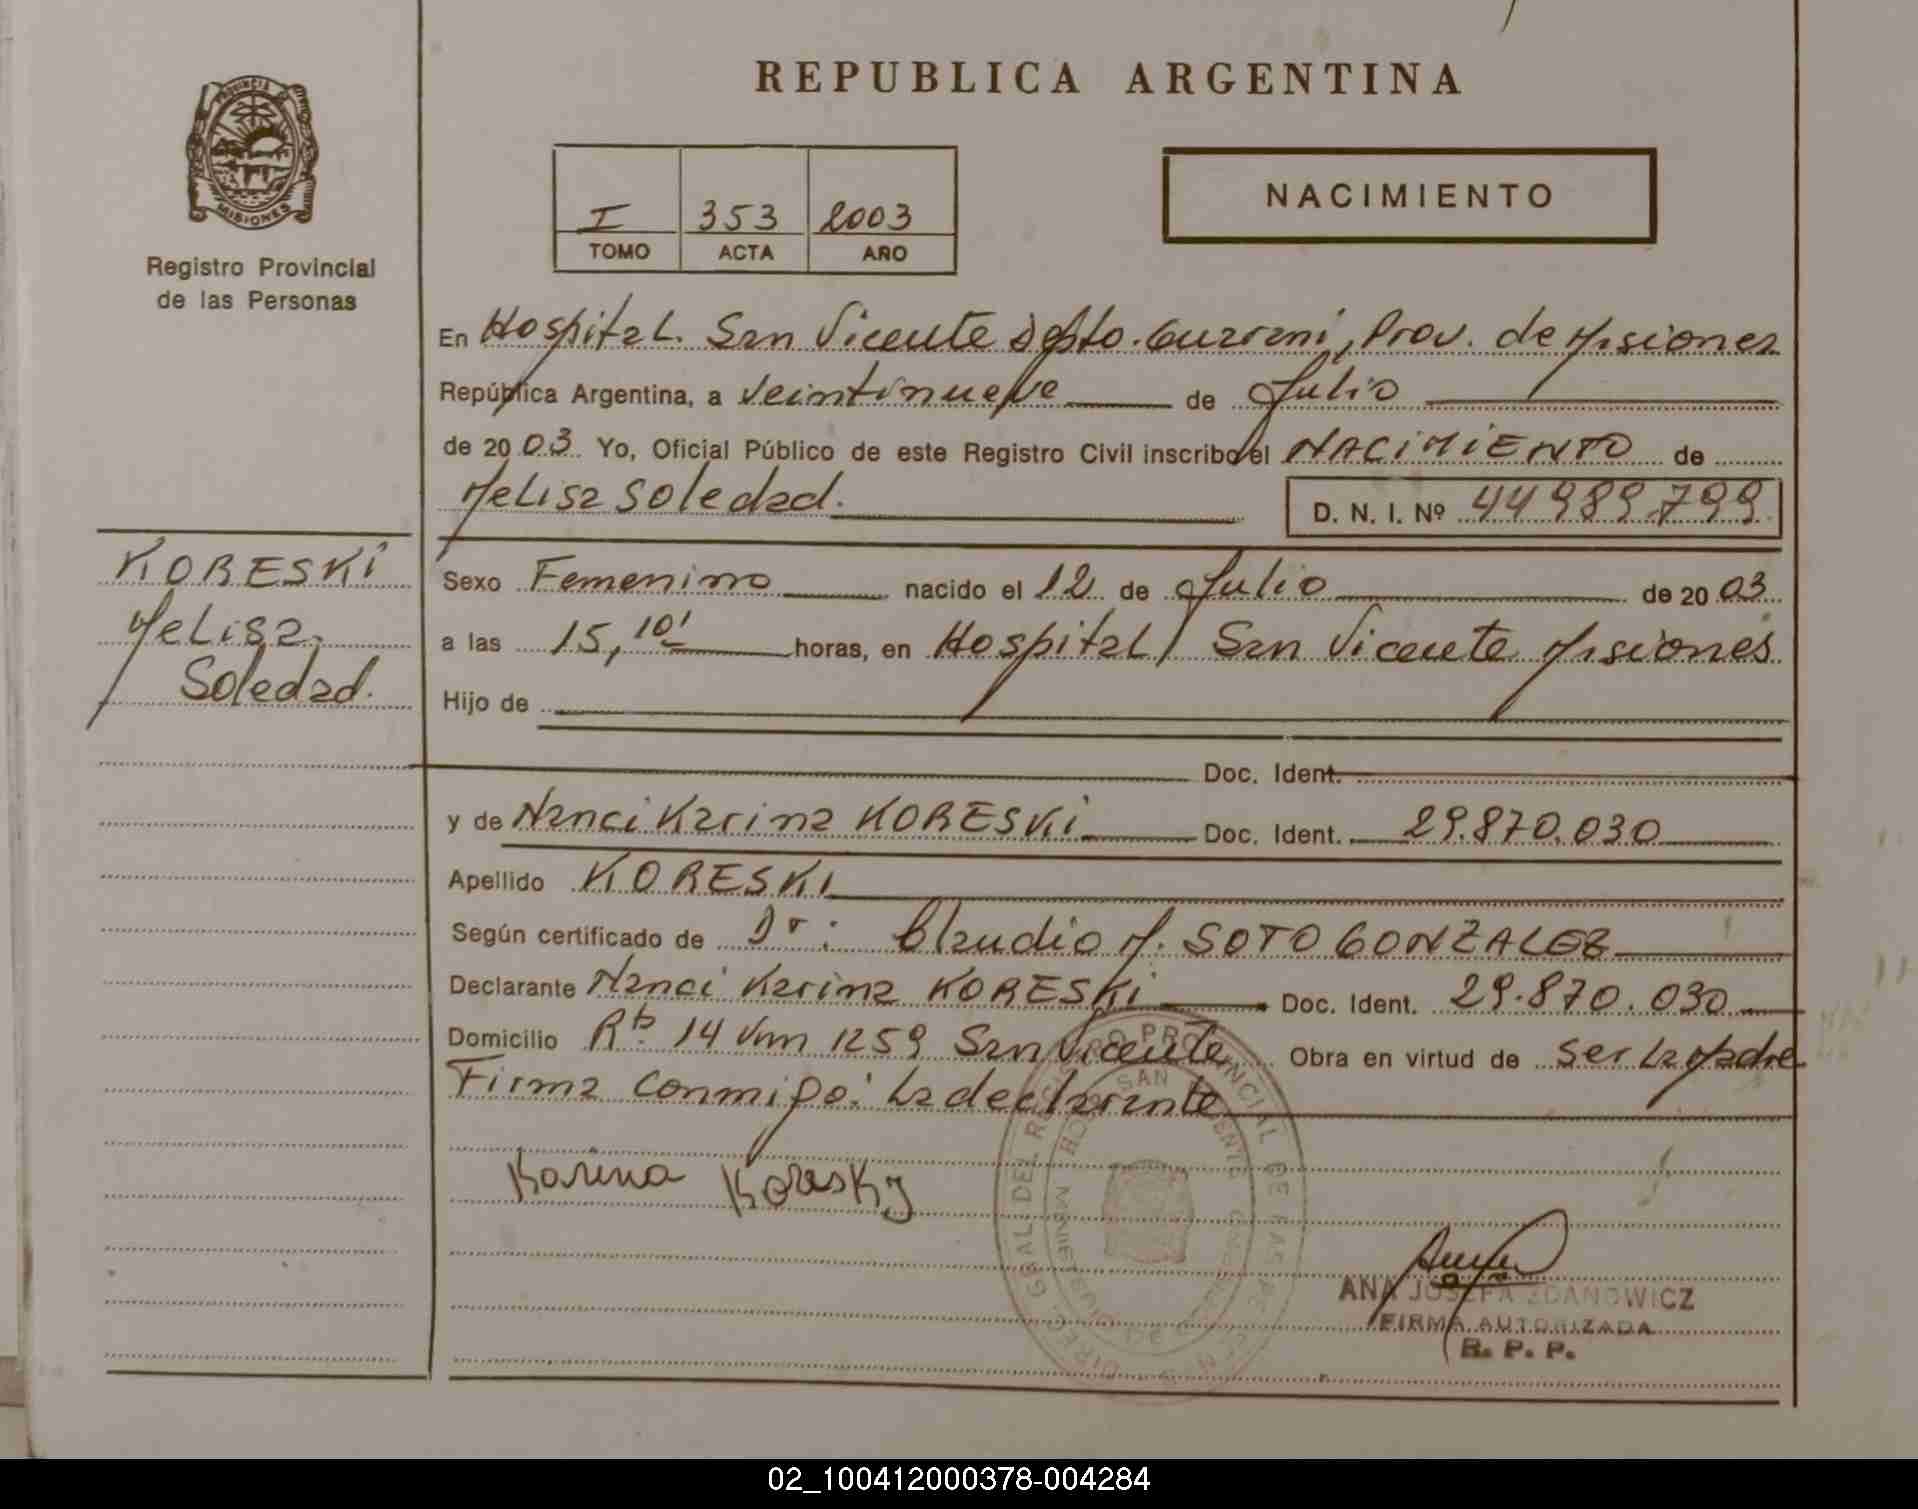 REPUBLICA ARGENTINA
PROVINCIA DE
MISIONES
Registro Provincial
de las Personas
I 353 2003
TOMO ACTA AÑO
NACIMIENTO
En Hospital. San Vicente Dpto. Guarani, Prov. de Misiones
República Argentina, a Veintinueve de Julio
de 2003 Yo, Oficial Público de este Registro Civil inscribo el NACIMIENTO de
Melisa Soledad. D. N. I. Nº 44989.799
KORESKI
Melisa
Soledad.
Sexo Femenino nacido el 12 de Julio de 2003
a las 15,10' horas, en Hospital San Vicente Misiones
Hijo de
Doc. Ident.
y de Nanci Karina KORESKI Doc. Ident. 29.870.030
Apellido KORESKI
Según certificado de Dr: Claudio M. SOTO GONZALEZ
Declarante Nanci Karina KORESKI Doc. Ident. 29.870.030
Domicilio Rta. 14 Km 1259 San Vicente Obra en virtud de Ser La Madre
Firma conmigo: La declarante
Karina Koresky
DIREC. GRAL DEL REGISTRO PROVINCIAL DE LAS PERS
HOSP SAN VICENTE
ANA JOSEFA ZDANOWICZ
FIRMA AUTORIZADA
R. P. P.
02_100412000378-004284